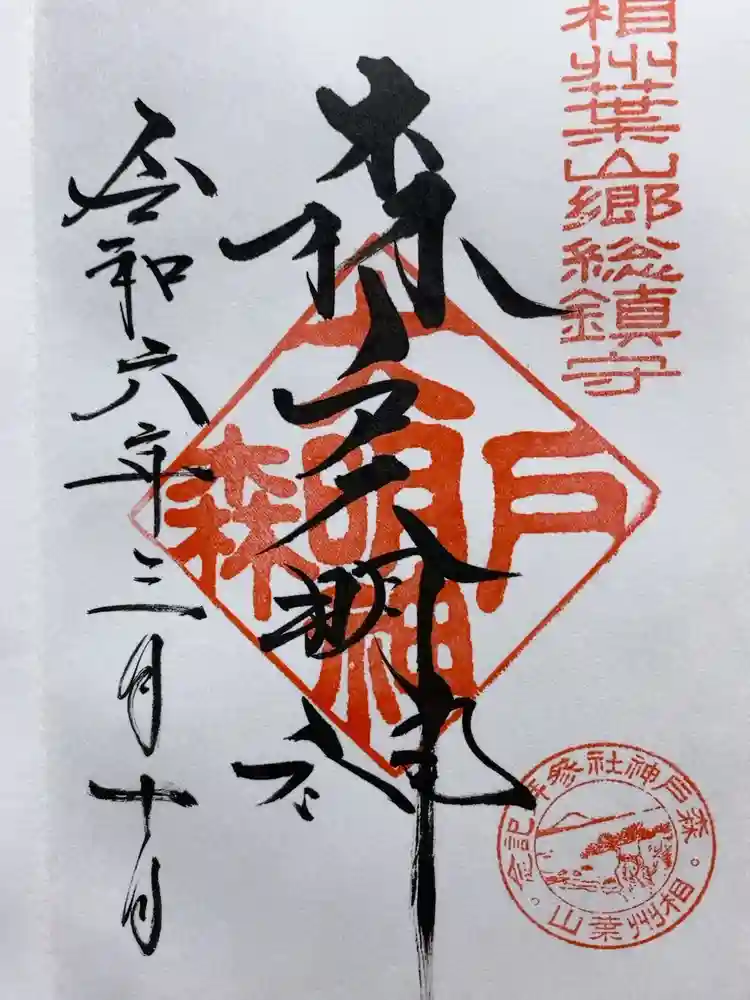 相州葉山郷総鎮守
森戸大明神
森戸大明神
令和六年三月十日
森戸神社参拝記念。相州葉山。